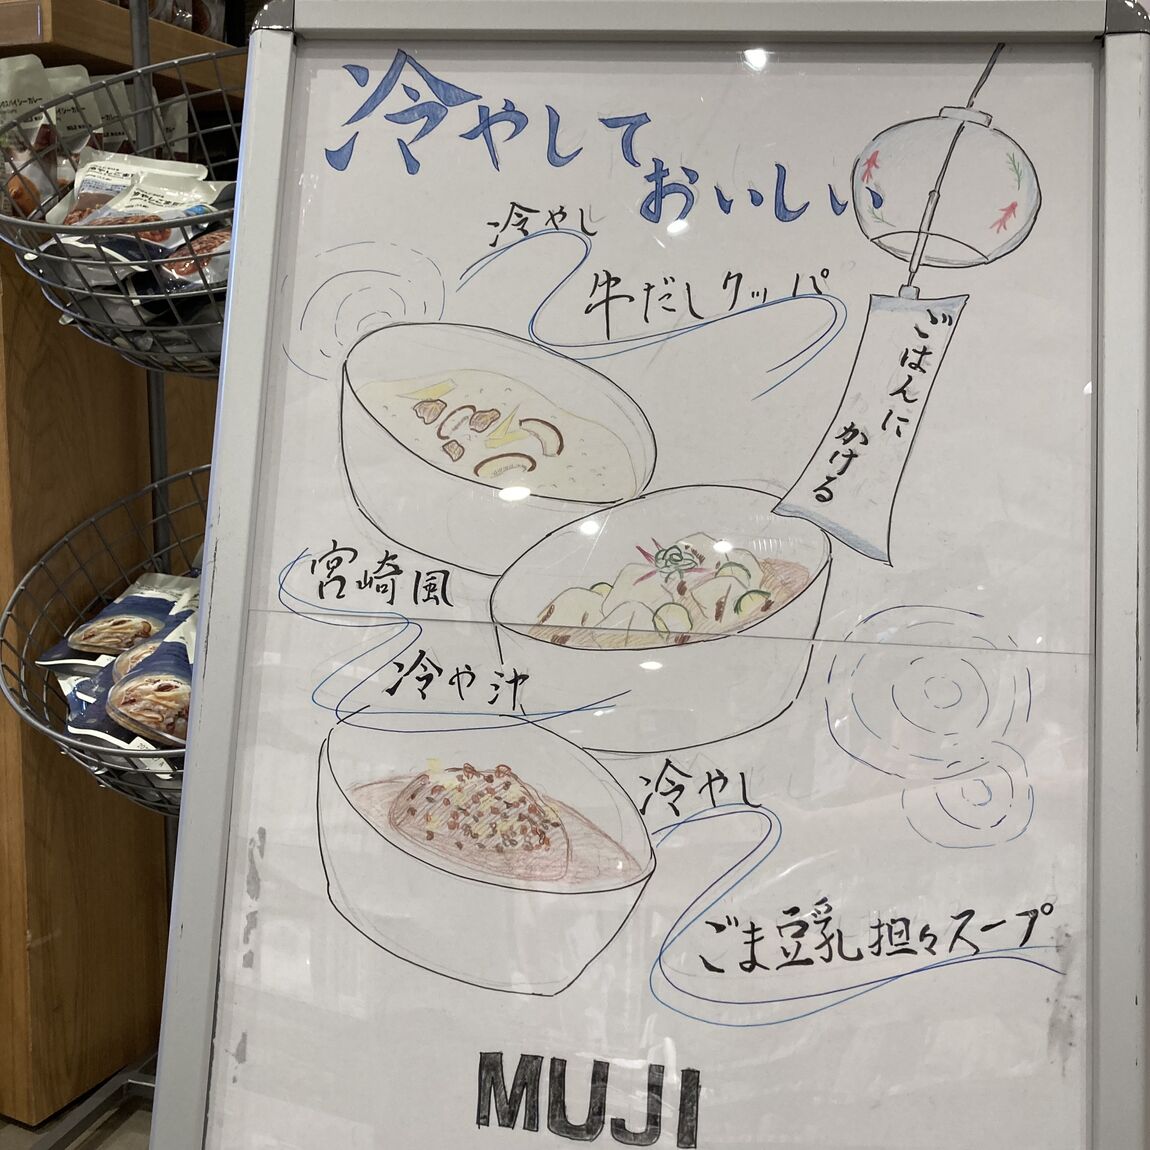 冷やして
おいしい
冷やし
牛だしクッパ
ごはんに
かける
宮崎風
冷や汁
冷やし
ごま豆乳担々スープ
MUJI